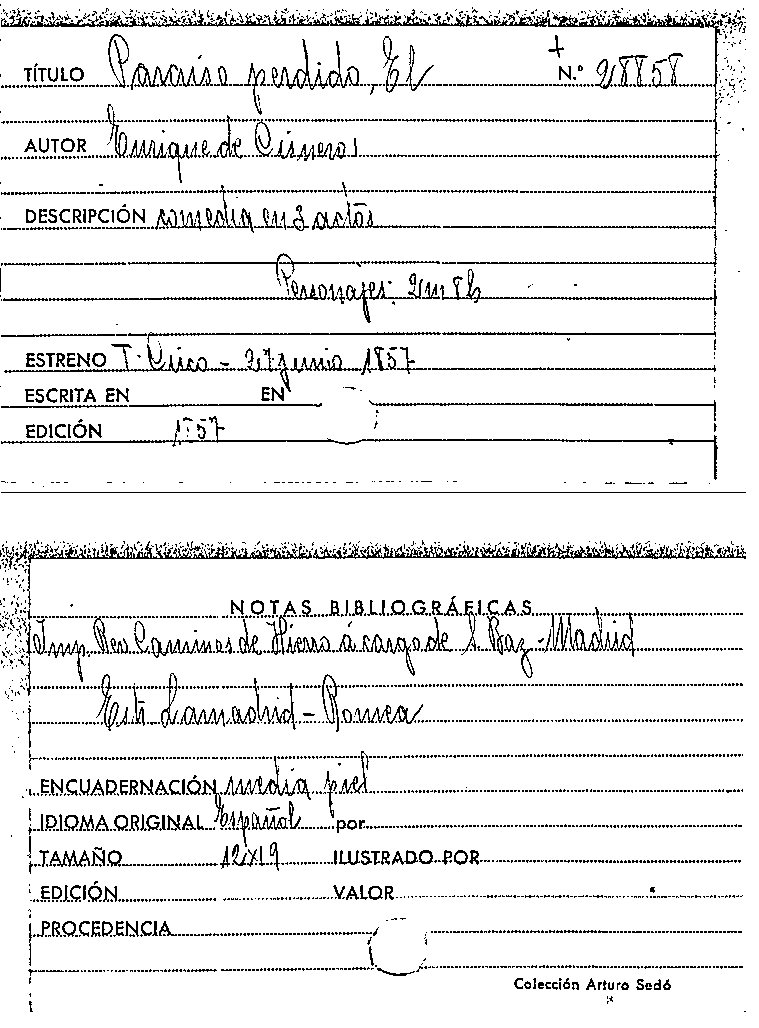 TÍTULO Paraiso perdido, El + N.º 28858
AUTOR Enrique de Cisneros
DESCRIPCIÓN comedia en 3 actos
Personajes: 2m 8h
ESTRENO T. Circo - 27 junio 1857
ESCRITA EN EN
EDICIÓN 1857
NOTAS BIBLIOGRÁFICAS
Imp. Rev Caminos de Hierro á cargo de S. Baz - Madrid
Estr. Lamadrid - Romea
ENCUADERNACIÓN media piel
IDIOMA ORIGINAL Español por
TAMAÑO 12x19 ILUSTRADO POR
EDICIÓN VALOR
PROCEDENCIA
Colección Arturo Sedó